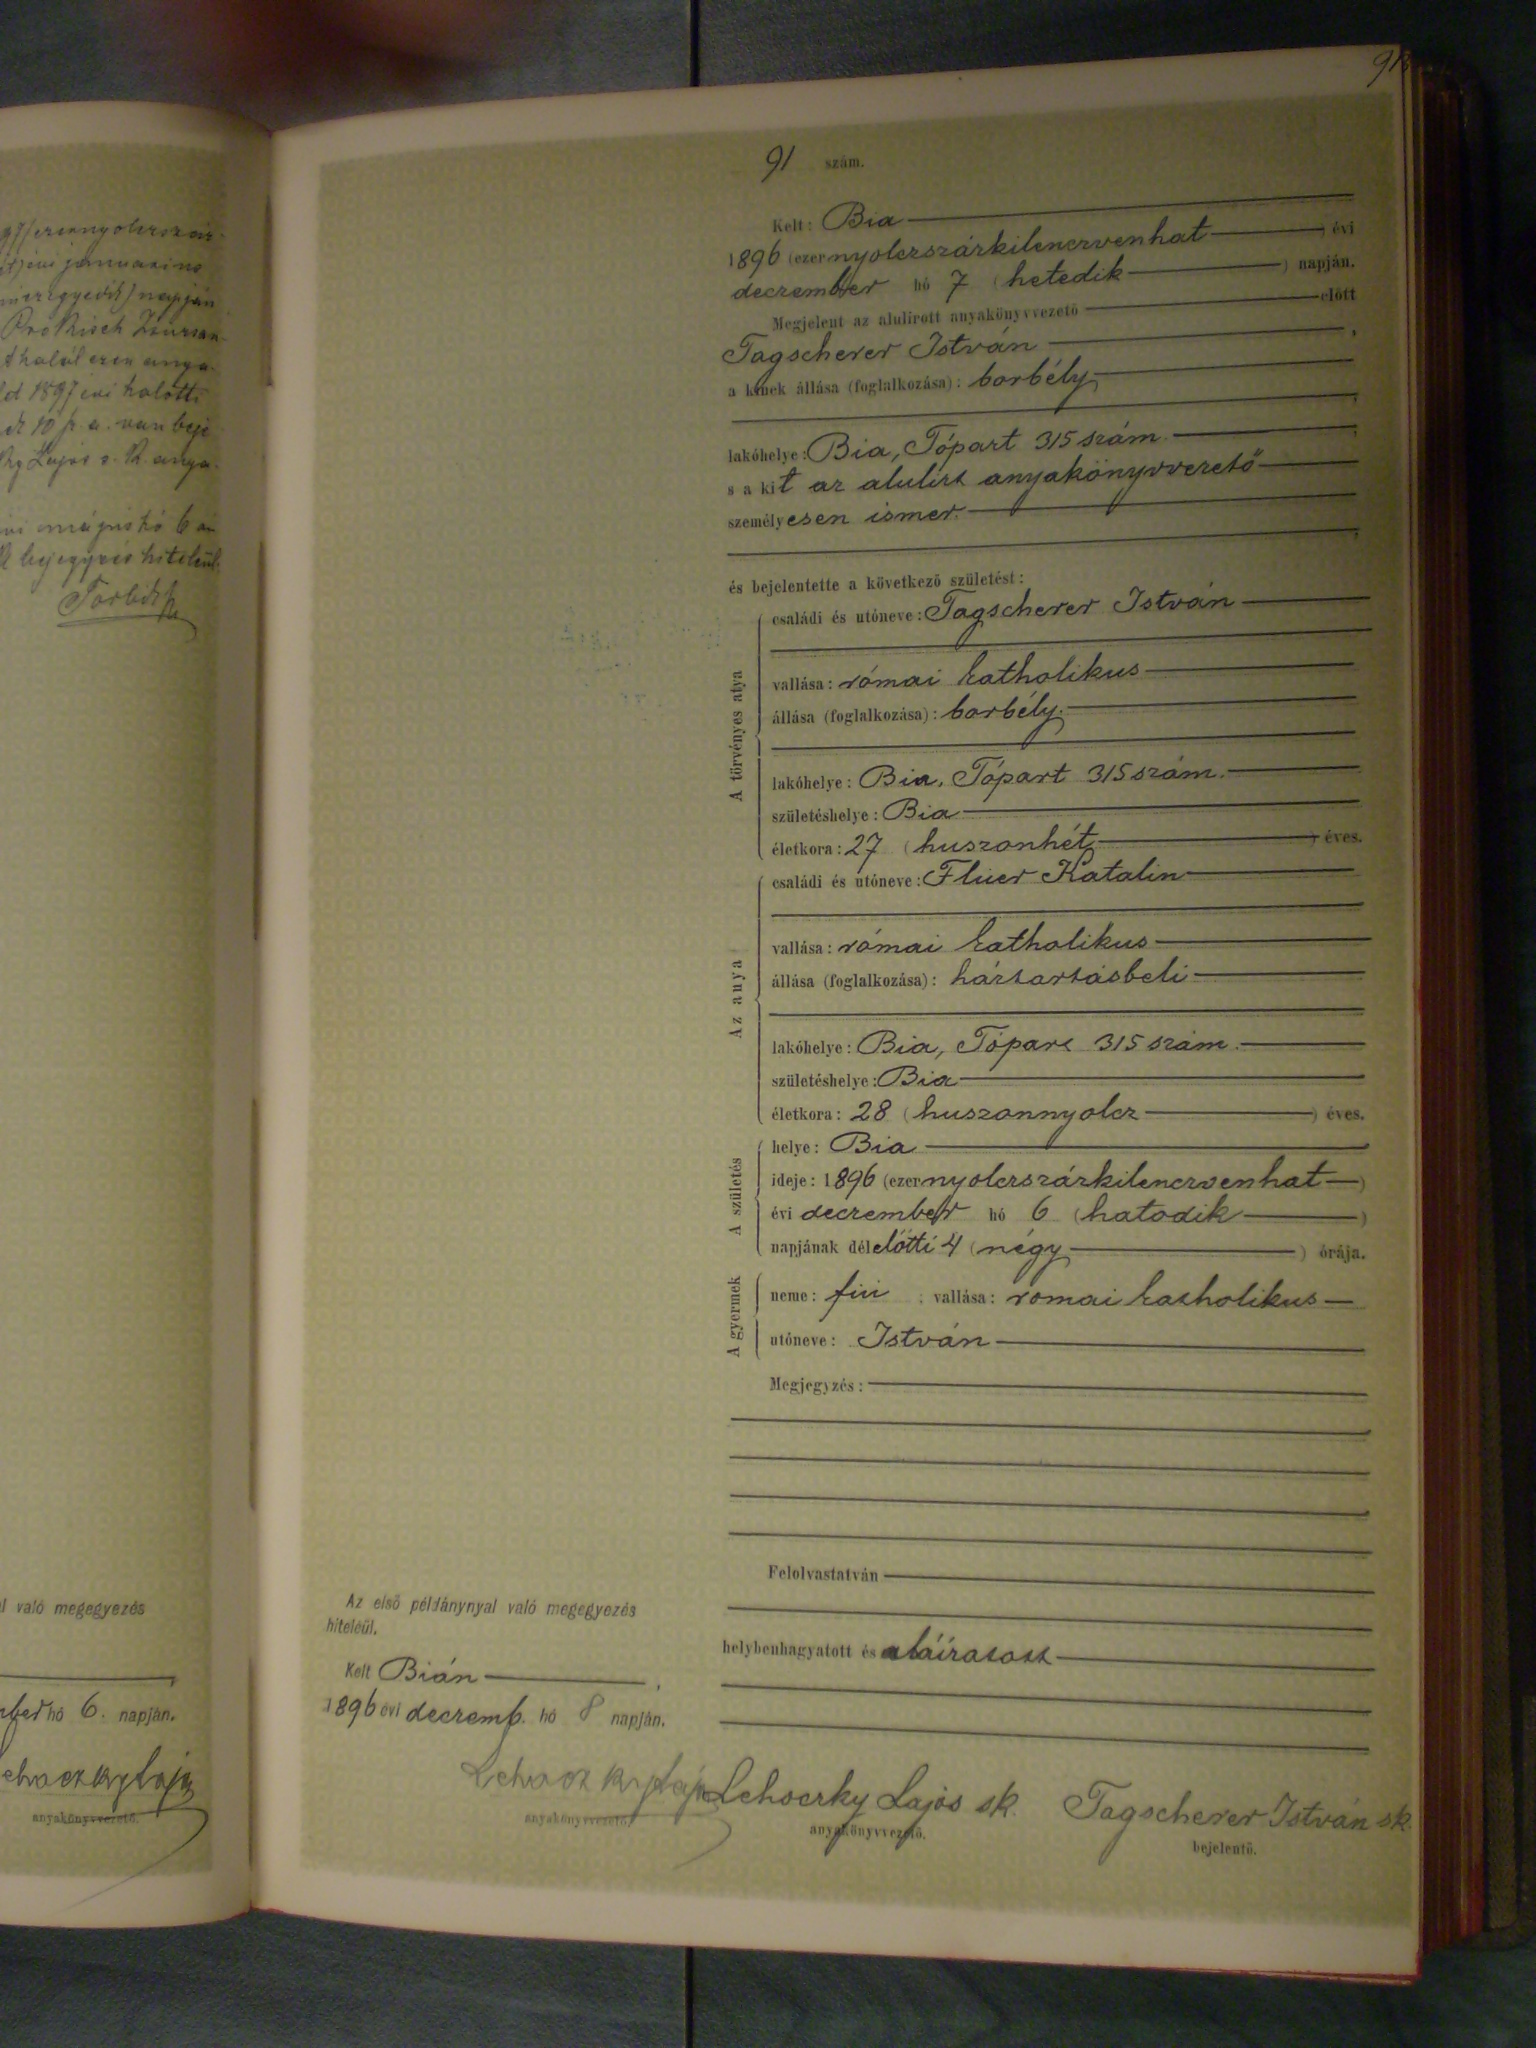 91
91 szám.
Kelt: Bia
1896 (ezernyolczszázkilenczvenhat) évi
deczember hó 7 (hetedik) napján.
Megjelent az alulírott anyakönyvvezető előtt
Tagscherer István,
a kinek állása (foglalkozása): borbély
lakóhelye: Bia, Tópart 315 szám
s a kit az alulirt anyakönyvvezető
személyesen ismer.
és bejelentette a következő születést:
A törvényes atya
családi és utóneve: Tagscherer István
vallása: római katholikus
állása (foglalkozása): borbély.
lakóhelye: Bia, Tópart 315 szám.
születéshelye: Bia
életkora: 27 (huszonhét) éves.
Az anya
családi és utóneve: Flüer Katalin
vallása: római katholikus
állása (foglalkozása): háztartásbeli
lakóhelye: Bia, Tópart 315 szám.
születéshelye: Bia
életkora: 28 (huszonnyolcz) éves.
A születés
helye: Bia
ideje: 1896 (ezernyolczszázkilenczvenhat)
évi deczember hó 6 (hatodik)
napjának délelőtti 4 (négy) órája.
A gyermek
neme: fiú vallása: romai katholikus
utóneve: István
Megjegyzés:
Felolvastatván
helybenhagyatott és aláíratott
Az első példánynyal való megegyezés
hiteléül.
Kelt Bián,
1896 évi deczemb. hó 8 napján.
Lehoczky Lajos
anyakönyvvezető.
Lehoczky Lajos sk.
anyakönyvvezető.
Tagscherer István sk.
bejelentő.
való megegyezés
hó 6. napján.
anyakönyvvezető.